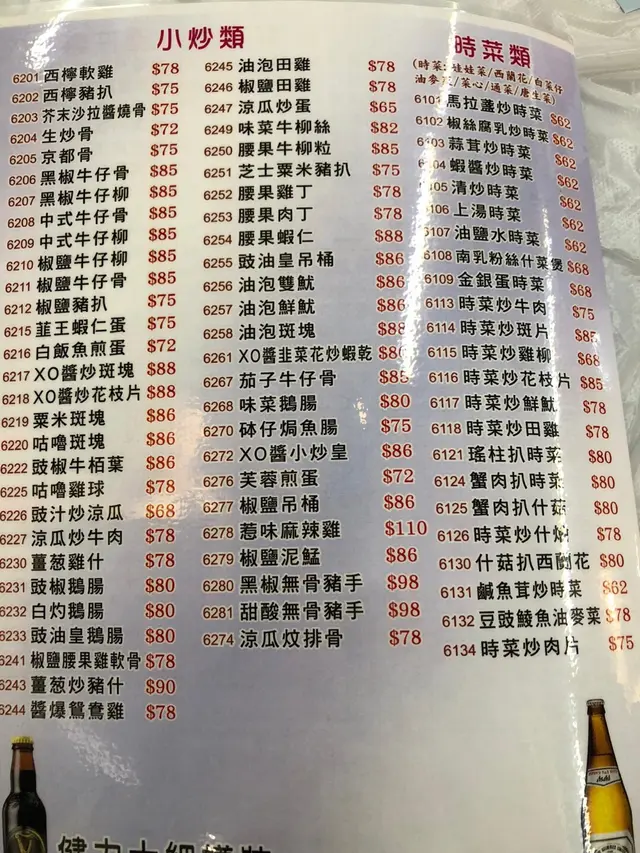 小炒類
6201 西檸軟雞 $78
6202 西檸豬扒 $75
6203 芥末沙拉醬燒骨 $75
6204 生炒骨 $72
6205 京都骨 $75
6206 黑椒牛仔骨 $85
6207 黑椒牛仔柳 $85
6208 中式牛仔骨 $85
6209 中式牛仔柳 $85
6210 椒鹽牛仔柳 $85
6211 椒鹽牛仔骨 $85
6212 椒鹽豬扒 $75
6215 韮王蝦仁蛋 $75
6216 白飯魚煎蛋 $72
6217 XO醬炒斑塊 $88
6218 XO醬炒花枝片 $88
6219 粟米斑塊 $86
6220 咕嚕斑塊 $86
6222 豉椒牛栢葉 $86
6225 咕嚕雞球 $78
6226 豉汁炒涼瓜 $68
6227 涼瓜炒牛肉 $78
6230 薑葱雞什 $78
6231 豉椒鵝腸 $80
6232 白灼鵝腸 $80
6233 豉油皇鵝腸 $80
6241 椒鹽腰果雞軟骨 $78
6243 薑葱炒豬什 $90
6244 醬爆鴛鴦雞 $78
6245 油泡田雞 $78
6246 椒鹽田雞 $78
6247 涼瓜炒蛋 $65
6249 味菜牛柳絲 $82
6250 腰果牛柳粒 $85
6251 芝士粟米豬扒 $75
6252 腰果雞丁 $78
6253 腰果肉丁 $78
6254 腰果蝦仁 $88
6255 豉油皇吊桶 $86
6256 油泡雙魷 $86
6257 油泡鮮魷 $86
6258 油泡斑塊 $88
6261 XO醬韭菜花炒蝦乾
6267 茄子牛仔骨 $85
6268 味菜鵝腸 $80
6270 砵仔焗魚腸 $75
6272 XO醬小炒皇 $86
6276 芙蓉煎蛋 $72
6277 椒鹽吊桶 $86
6278 惹味麻辣雞 $110
6279 椒鹽泥鯭 $86
6280 黑椒無骨豬手 $98
6281 甜酸無骨豬手 $98
6274 涼瓜炆排骨 $78
時菜類
(時菜:娃娃菜/西蘭花/白菜仔
油麥菜/菜心/通菜/唐生菜)
6101 馬拉盞炒時菜 $62
6102 椒絲腐乳炒時菜 $62
6103 蒜茸炒時菜 $62
6104 蝦醬炒時菜 $62
6105 清炒時菜 $62
6106 上湯時菜 $62
6107 油鹽水時菜 $62
6108 南乳粉絲什菜煲 $68
6109 金銀蛋時菜 $68
6113 時菜炒牛肉 $75
6114 時菜炒斑片 $85
6115 時菜炒雞柳 $68
6116 時菜炒花枝片 $85
6117 時菜炒鮮魷 $78
6118 時菜炒田雞 $78
6121 瑤柱扒時菜 $80
6124 蟹肉扒時菜 $80
6125 蟹肉扒什菇 $80
6126 時菜炒什 $78
6130 什菇扒西蘭花 $80
6131 鹹魚茸炒時菜 $62
6132 豆豉鯪魚油麥菜 $78
6134 時菜炒肉片 $75
Asahi
健力士